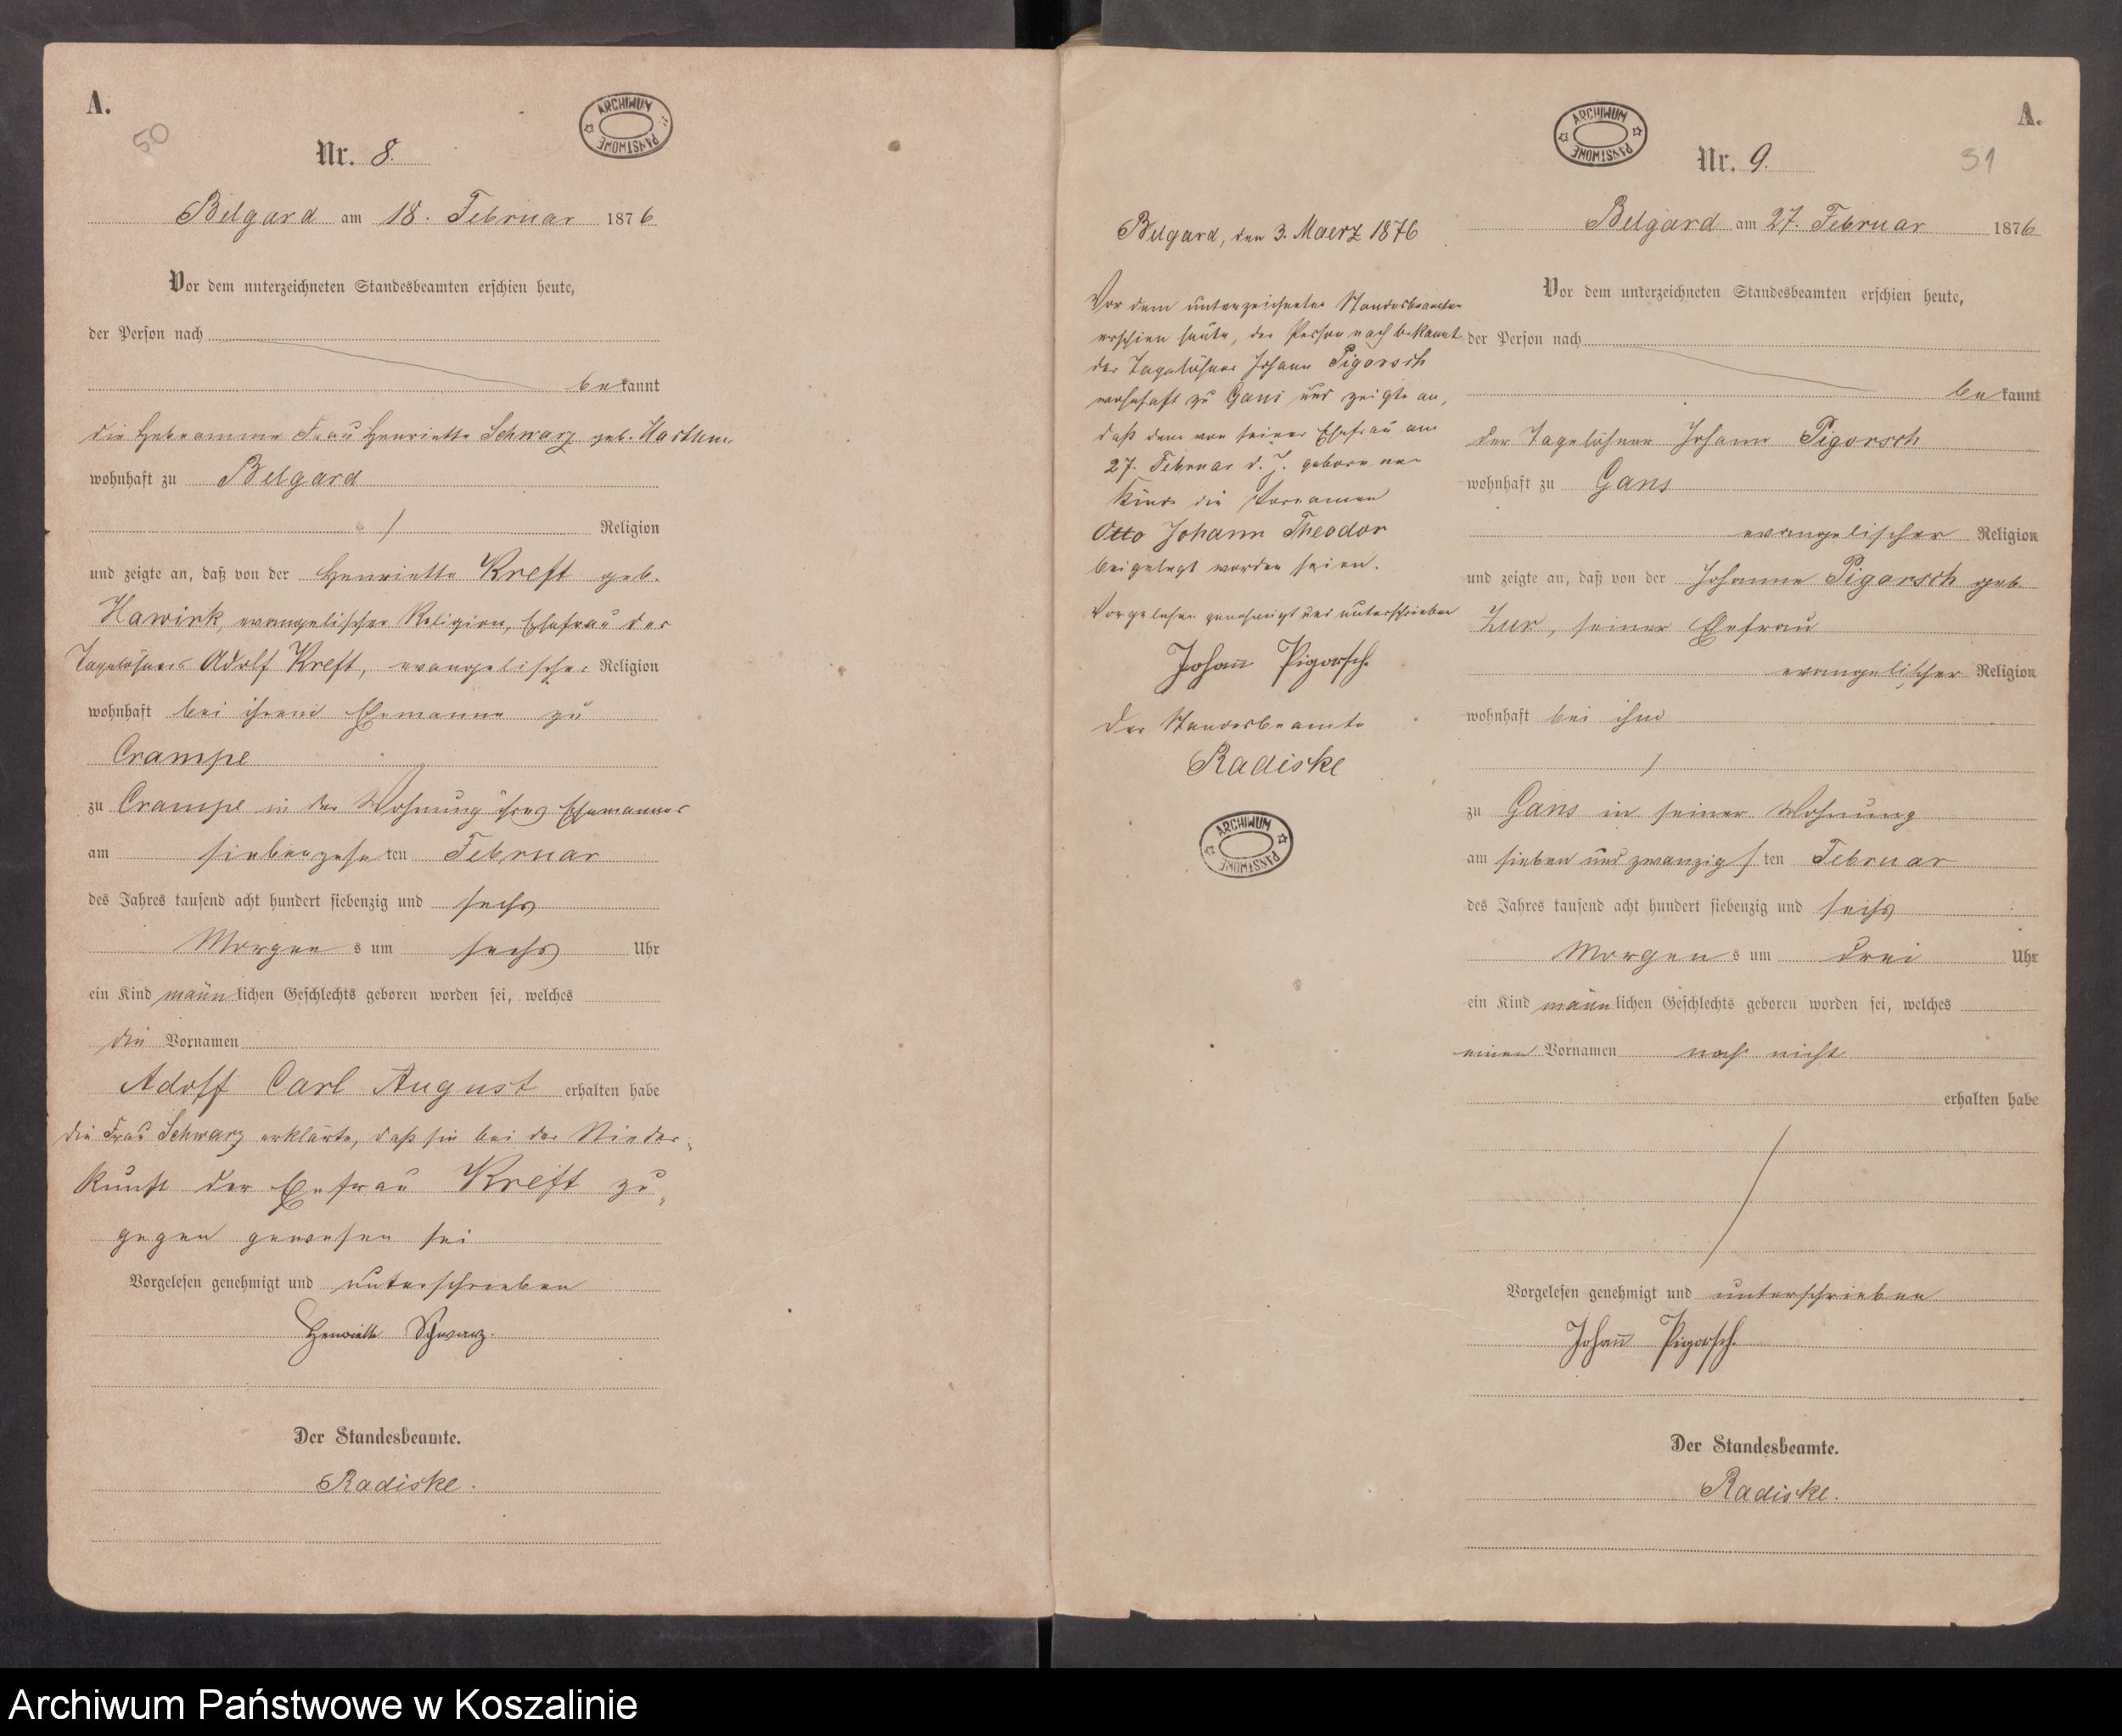 A.
50
ARCHIWUM PAŃSTWOWE
Nr. 8.
Belgard am 18. Februar 1876
Vor dem unterzeichneten Standesbeamten erschien heute,
der Person nach
bekannt
die Hebeamme Frau Henriette Schwarz geb.
wohnhaft zu Belgard
/ Religion
und zeigte an, daß von der Henriette Kreft geb.
Hawink, evangelischer Religion, Ehefrau des
Tagelöhners Adolf Kreft, evangelischer Religion
wohnhaft bei ihrem Ehemanne zu
Crampe
zu Crampe in der Wohnung ihres Ehemannes
am siebenzehnten Februar
des Jahres tausend acht hundert siebenzig und sechs
Morgens um sechs Uhr
ein Kind männlichen Geschlechts geboren worden sei, welches
die Vornamen
Adolf Carl August erhalten habe
die Frau Schwarz erklärte, daß sie bei der Nieder-
kunft der Ehefrau Kreft zu-
gegen gewesen sei
Vorgelesen genehmigt und unterschrieben
Henriette Schwarz.
Der Standesbeamte.
Radiske.
Belgard, den 3. Maerz 1876
Vor dem unterzeichneten Standesbeamten
erschien heute, der Person nach bekannt
der Tagelöhner Johann Pigorsch
wohnhaft zu Gans und zeigte an,
daß dem von seiner Ehefrau am
27. Februar d. J. geborenen
Kinde die Vornamen
Otto Johann Theodor
beigelegt worden seien.
Vorgelesen genehmigt und unterschrieben
Johann Pigorsch.
Der Standesbeamte
Radiske
ARCHIWUM PAŃSTWOWE
ARCHIWUM PAŃSTWOWE
A.
51
Nr. 9.
Belgard am 27. Februar 1876
Vor dem unterzeichneten Standesbeamten erschien heute,
der Person nach
bekannt
der Tagelöhner Johann Pigorsch
wohnhaft zu Gans
evangelischer Religion
und zeigte an, daß von der Johanne Pigorsch geb.
Zur, seiner Ehefrau
evangelischer Religion
wohnhaft bei ihm
/
zu Gans in seiner Wohnung
am sieben und zwanzigsten Februar
des Jahres tausend acht hundert siebenzig und sechs
Morgens um drei Uhr
ein Kind männlichen Geschlechts geboren worden sei, welches
einen Vornamen noch nicht
erhalten habe
Vorgelesen genehmigt und unterschrieben
Johann Pigorsch.
Der Standesbeamte.
Radiske.
Archiwum Państwowe w Koszalinie